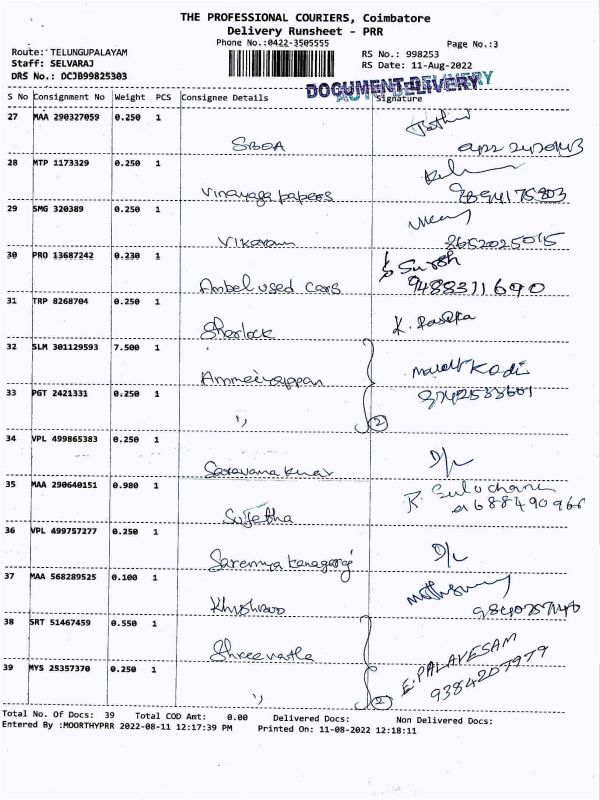 THE PROFESSIONAL COURIERS, Coimbatore
Delivery Runsheet - PRR
Phone No.:0422-3505555
Page No.:3
Route: TELUNGUPALAYAM
RS No.: 998253
Staff: SELVARAJ
RS Date: 11-Aug-2022
DRS No.: DCJB99825303
DOCUMENT DELIVERY
S No Consignment No Weight PCS Consignee Details Signature
27 MAA 290327059 0.250 1
SBOA
28 MTP 1173329 0.250 1
Vinayaga papers 9894175803
29 SMG 320389 0.250 1
Vikaram 8652025015
30 PRO 13687242 0.230 1
Suresh
Ambel used cars 9488311690
31 TRP 8268704 0.250 1
Sherlock K.
32 SLM 301129593 7.500 1
33 PGT 2421331 0.250 1
" 2
34 VPL 499865383 0.250 1
D/L
35 MAA 290640151 0.980 1
R. Sulochana
36 VPL 499757277 0.250 1
D/L
37 MAA 568289525 0.100 1
38 SRT 51467459 0.550 1
39 MYS 25357370 0.250 1
E. PALAVESAM
" 2 9384207979
Total No. Of Docs: 39 Total COD Amt: 0.00 Delivered Docs: Non Delivered Docs:
Entered By :MOORTHYPRR 2022-08-11 12:17:39 PM Printed On: 11-08-2022 12:18:11